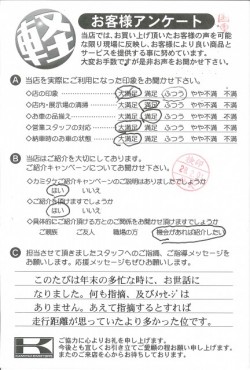 軽
お客様アンケート
当店では、お買い上げ頂いたお客様の声を可能
な限り現場に反映し、お客様により良い商品と
サービスを提供する事に努めています。
大変お手数ですが是非お声をお聞かせ下さい。
A 当店を実際にご利用になった印象をお聞かせ下さい。
◇店の印象 大満足 満足 ふつう やや不満 不満
◇店内・展示場の清掃 大満足 満足 ふつう やや不満 不満
◇お車の品揃え 大満足 満足 ふつう やや不満 不満
◇営業スタッフの対応 大満足 満足 ふつう やや不満 不満
◇納車時のお車の状態 大満足 満足 ふつう やや不満 不満
B 当店はご紹介を大切にしております。
ご紹介キャンペーンについてお聞かせ下さい。
◇カミタケご紹介キャンペーンのご説明はありましたでしょうか
はい いいえ
◇ご紹介を頂けますでしょうか
はい いいえ
◇具体的にご紹介頂ける方とのご関係をお聞かせ頂けますでしょうか
ご親戚 ご友人 職場の方 機会があれば紹介したい
C 担当させて頂きましたスタッフへのご指摘、ご指導メッセージを
お願いします。応援メッセージもぜひお願いします。
このたびは年末の多忙な時に、お世話に
なりました。何も指摘、及びメッセージは
ありません。あえて指摘するとすれば
走行距離が思っていたより多かった位です。
ご協力に心よりお礼を申し上げます。
今後とも宜しくお引き立てご愛顧の程お願い申し上げます。
またのご来店を心からお待ちしております。